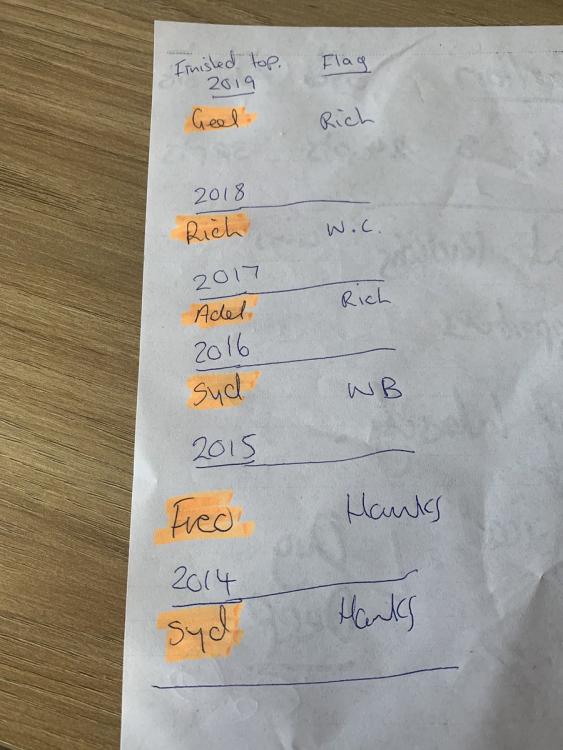 Finished top. Flag
2019
Geel Rich
2018
Rich W.C.
2017
Adel Rich
2016
Syd WB
2015
Freo Hawks
2014
Syd Hawks